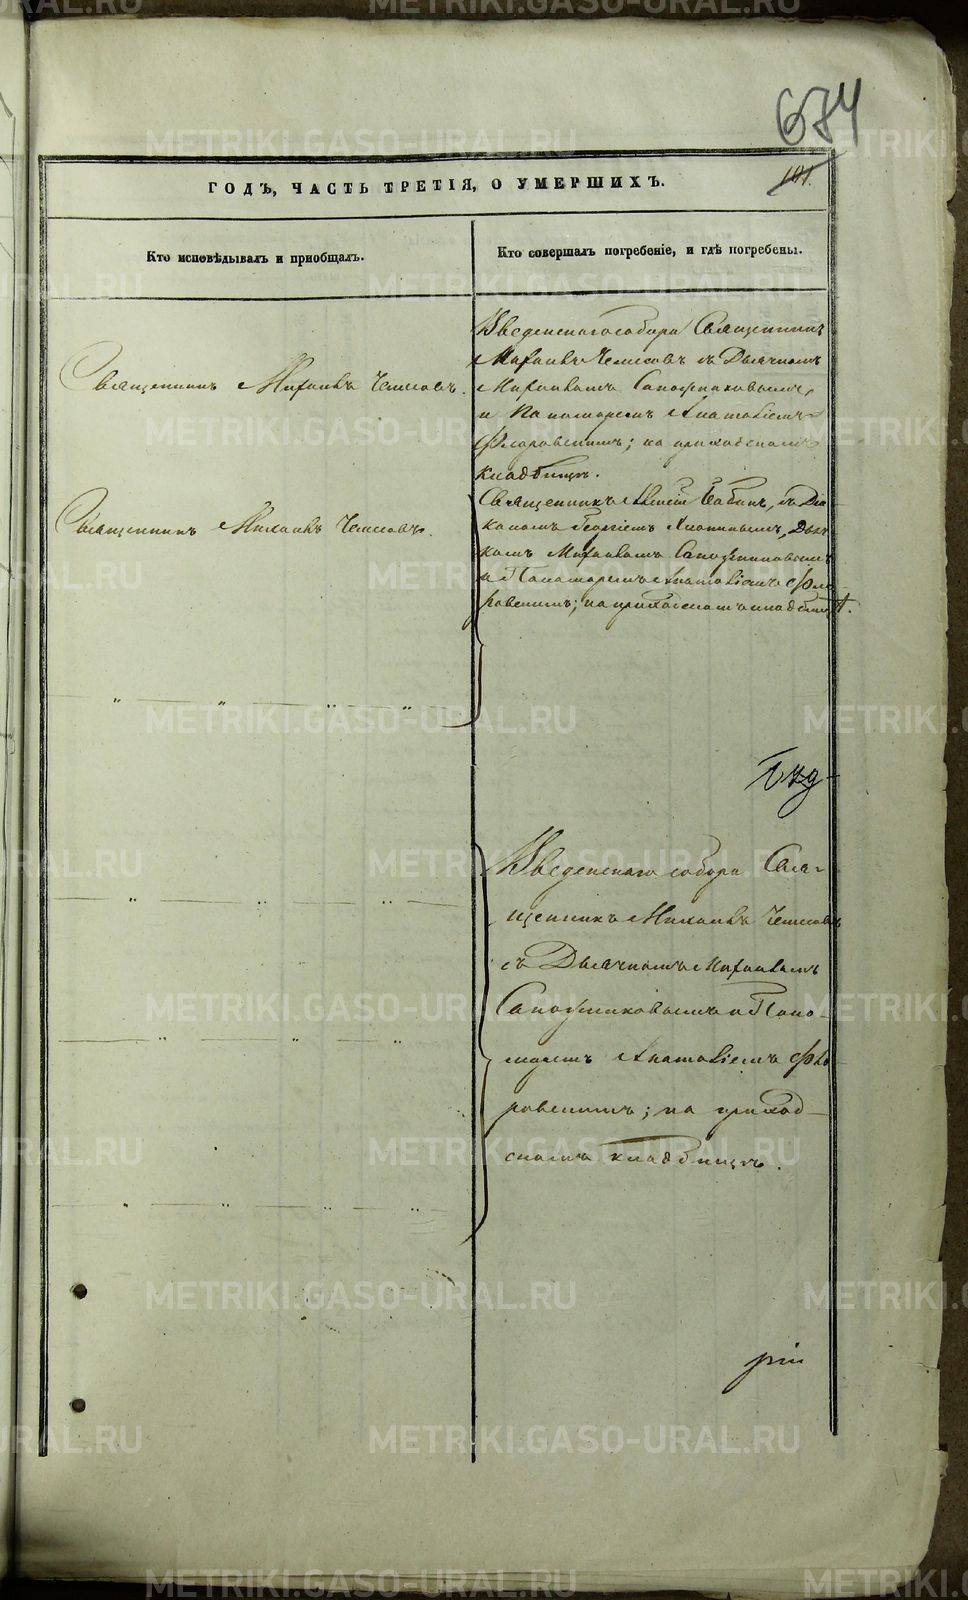 674
101.
ГОДЪ, ЧАСТЬ ТРЕТІЯ, О УМЕРШИХЪ.
Кто исповѣдывалъ и приобщалъ.
Кто совершалъ погребеніе, и гдѣ погребены.
Священникъ Михаилъ
Священникъ Михаилъ
Введенскаго собора Священникъ
Михаилъ съ Дьячкомъ
Михаиломъ Сапожниковымъ
и Пономаремъ Анатоліемъ
Флоровскимъ; на приходскомъ
кладбищѣ.
Священникъ Алексій Бабинъ, съ Діа-
кономъ Георгіемъ Дьяч-
комъ Михаиломъ Сапожниковымъ
и Пономаремъ Анатоліемъ Фло-
ровскимъ; на приходскомъ кладбищѣ.
Введенскаго собора Свя-
щенникъ Михаилъ
съ Дьячкомъ Михаиломъ
Сапожниковымъ и Поно-
маремъ Анатоліемъ Фло-
ровскимъ; на приход-
скомъ кладбищѣ.
рій
METRIKI.GASO-URAL.RU